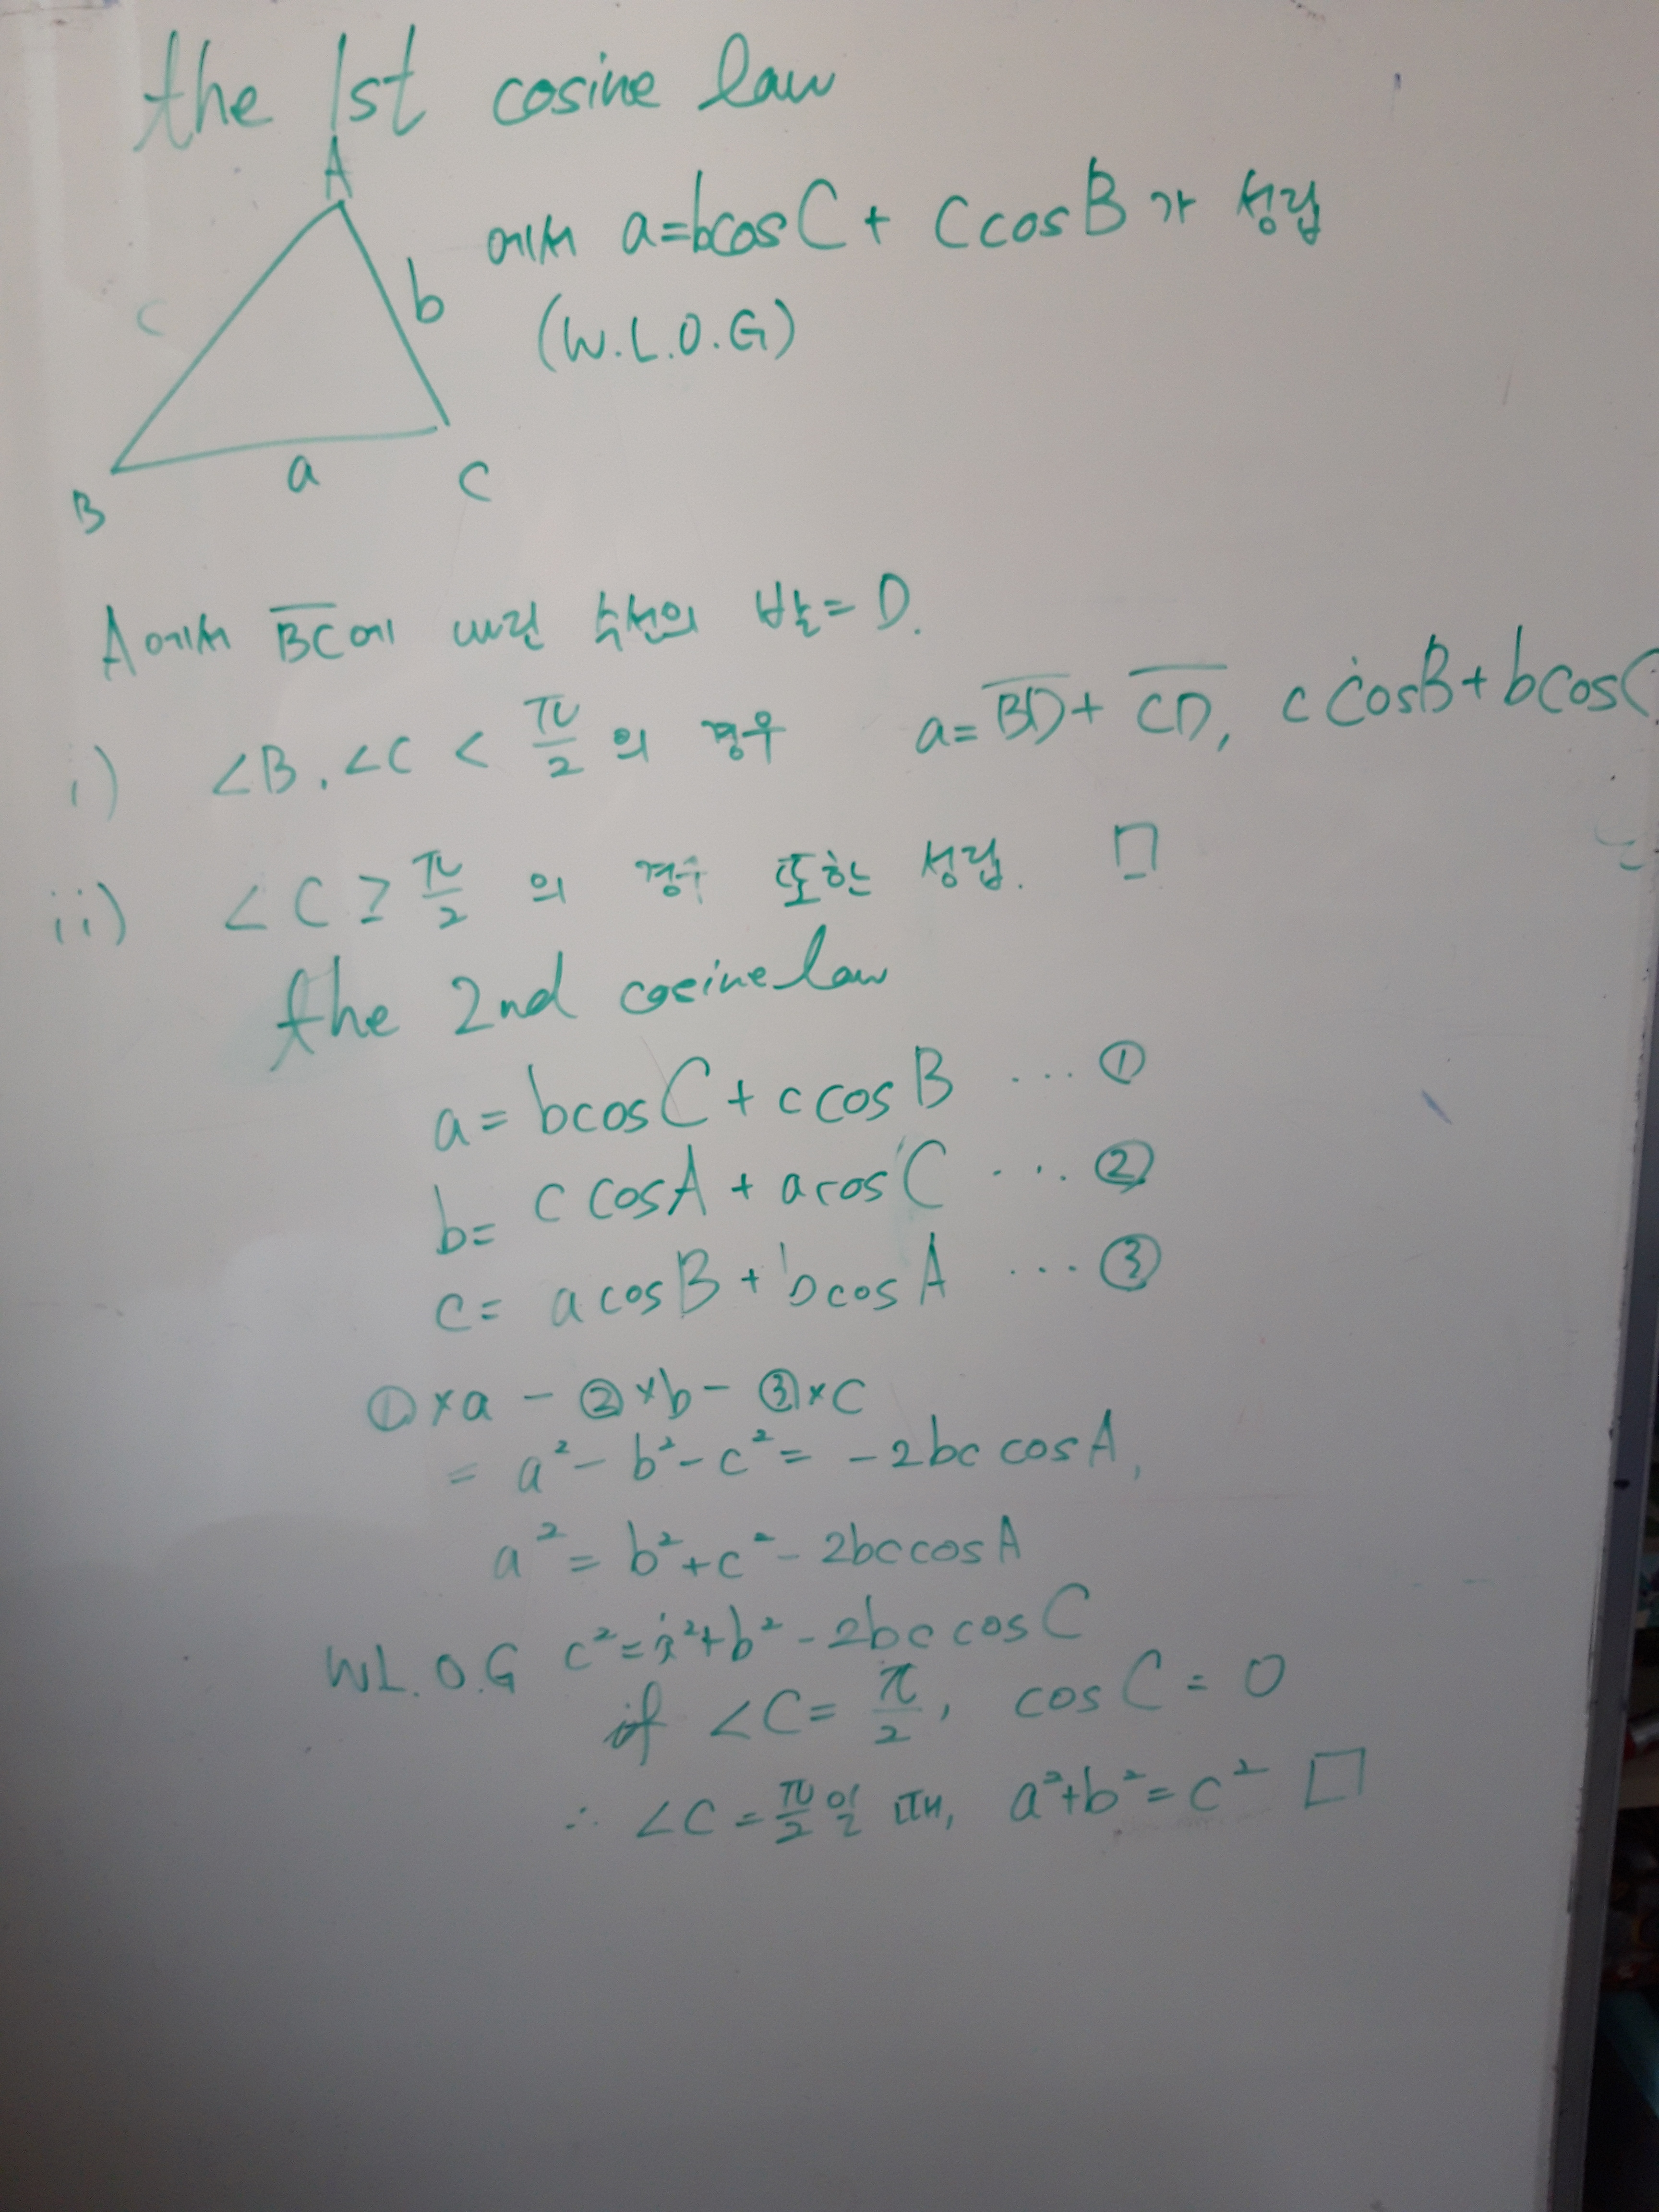 the 1st cosine law
A
에서 a=bcosC + CcosB가 성립
c
b
(W.L.O.G)
a
B
C
A에서 BC에 내린 수선의 발=D.
i) ∠B, ∠C < π/2 의 경우 a=BD+CD, c cosB+bcosC
ii) ∠C ≥ π/2 의 경우 또한 성립. □
the 2nd cosine law
a= bcosC + c cosB ... ①
b= c cosA + acosC ... ②
c= a cosB + bcosA ... ③
①×a - ②×b - ③×c
= a²-b²-c²= -2bc cosA,
a²= b²+c²-2bccosA
W.L.O.G c²=a²+b²-2bc cosC
if ∠C= π/2, cosC=0
∴ ∠C=π/2일 때, a²+b²=c² □